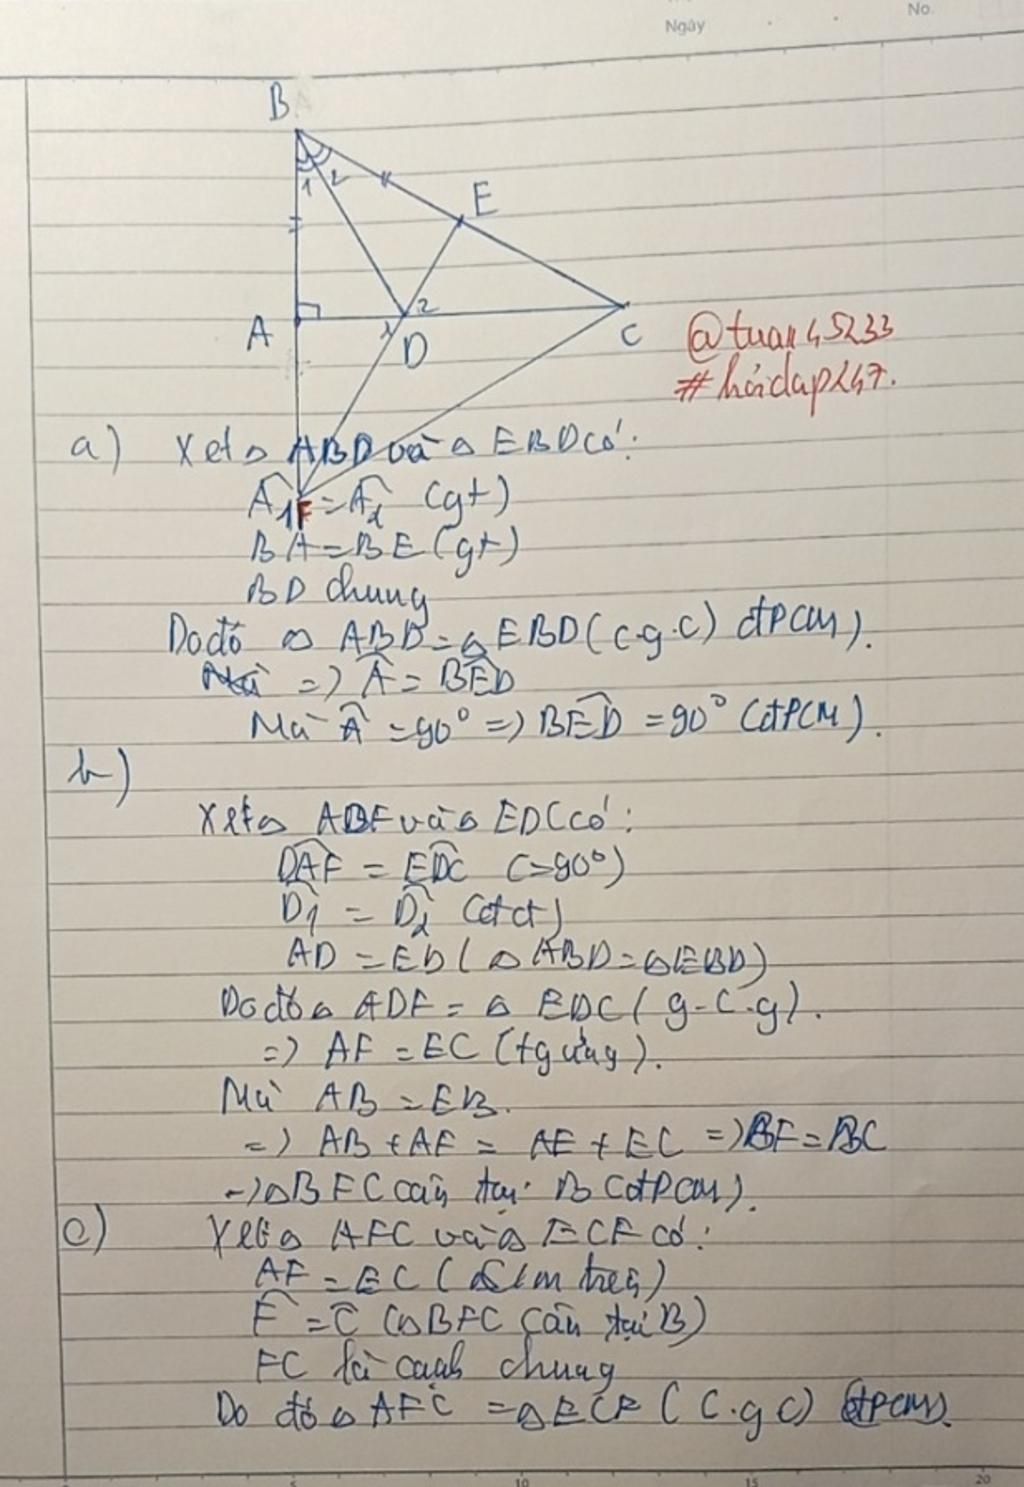 No.
Ngày
B
1 2
E
A
1 2
D
C
@tuan45233
#hỏidap247.
a) Xét △ ABD và △ EBD có:
F
A1 = A2 (gt)
BA = BE (gt)
BD chung
Do đó △ ABD = △ EBD (c.g.c) (đPCM).
=> A = BED
Mà A = 90° => BED = 90° (đPCM).
b)
Xét △ ADF và △ EDC có:
DAF = EDC (=90°)
D1 = D2 (đđ)
AD = ED (△ ABD = △ EBD)
Do đó △ ADF = △ EDC (g-c-g).
=> AF = EC (tg ứng).
Mà AB = EB.
=> AB + AF = AE + EC => BF = BC
=> △ BFC cân tại B (đPCM).
c) Xét △ AFC và △ ECF có:
AF = EC (trên)
F = C (△ BFC cân tại B)
FC là cạnh chung
Do đó △ AFC = △ ECF (c.g c) (đPCM).
5 10 15 20